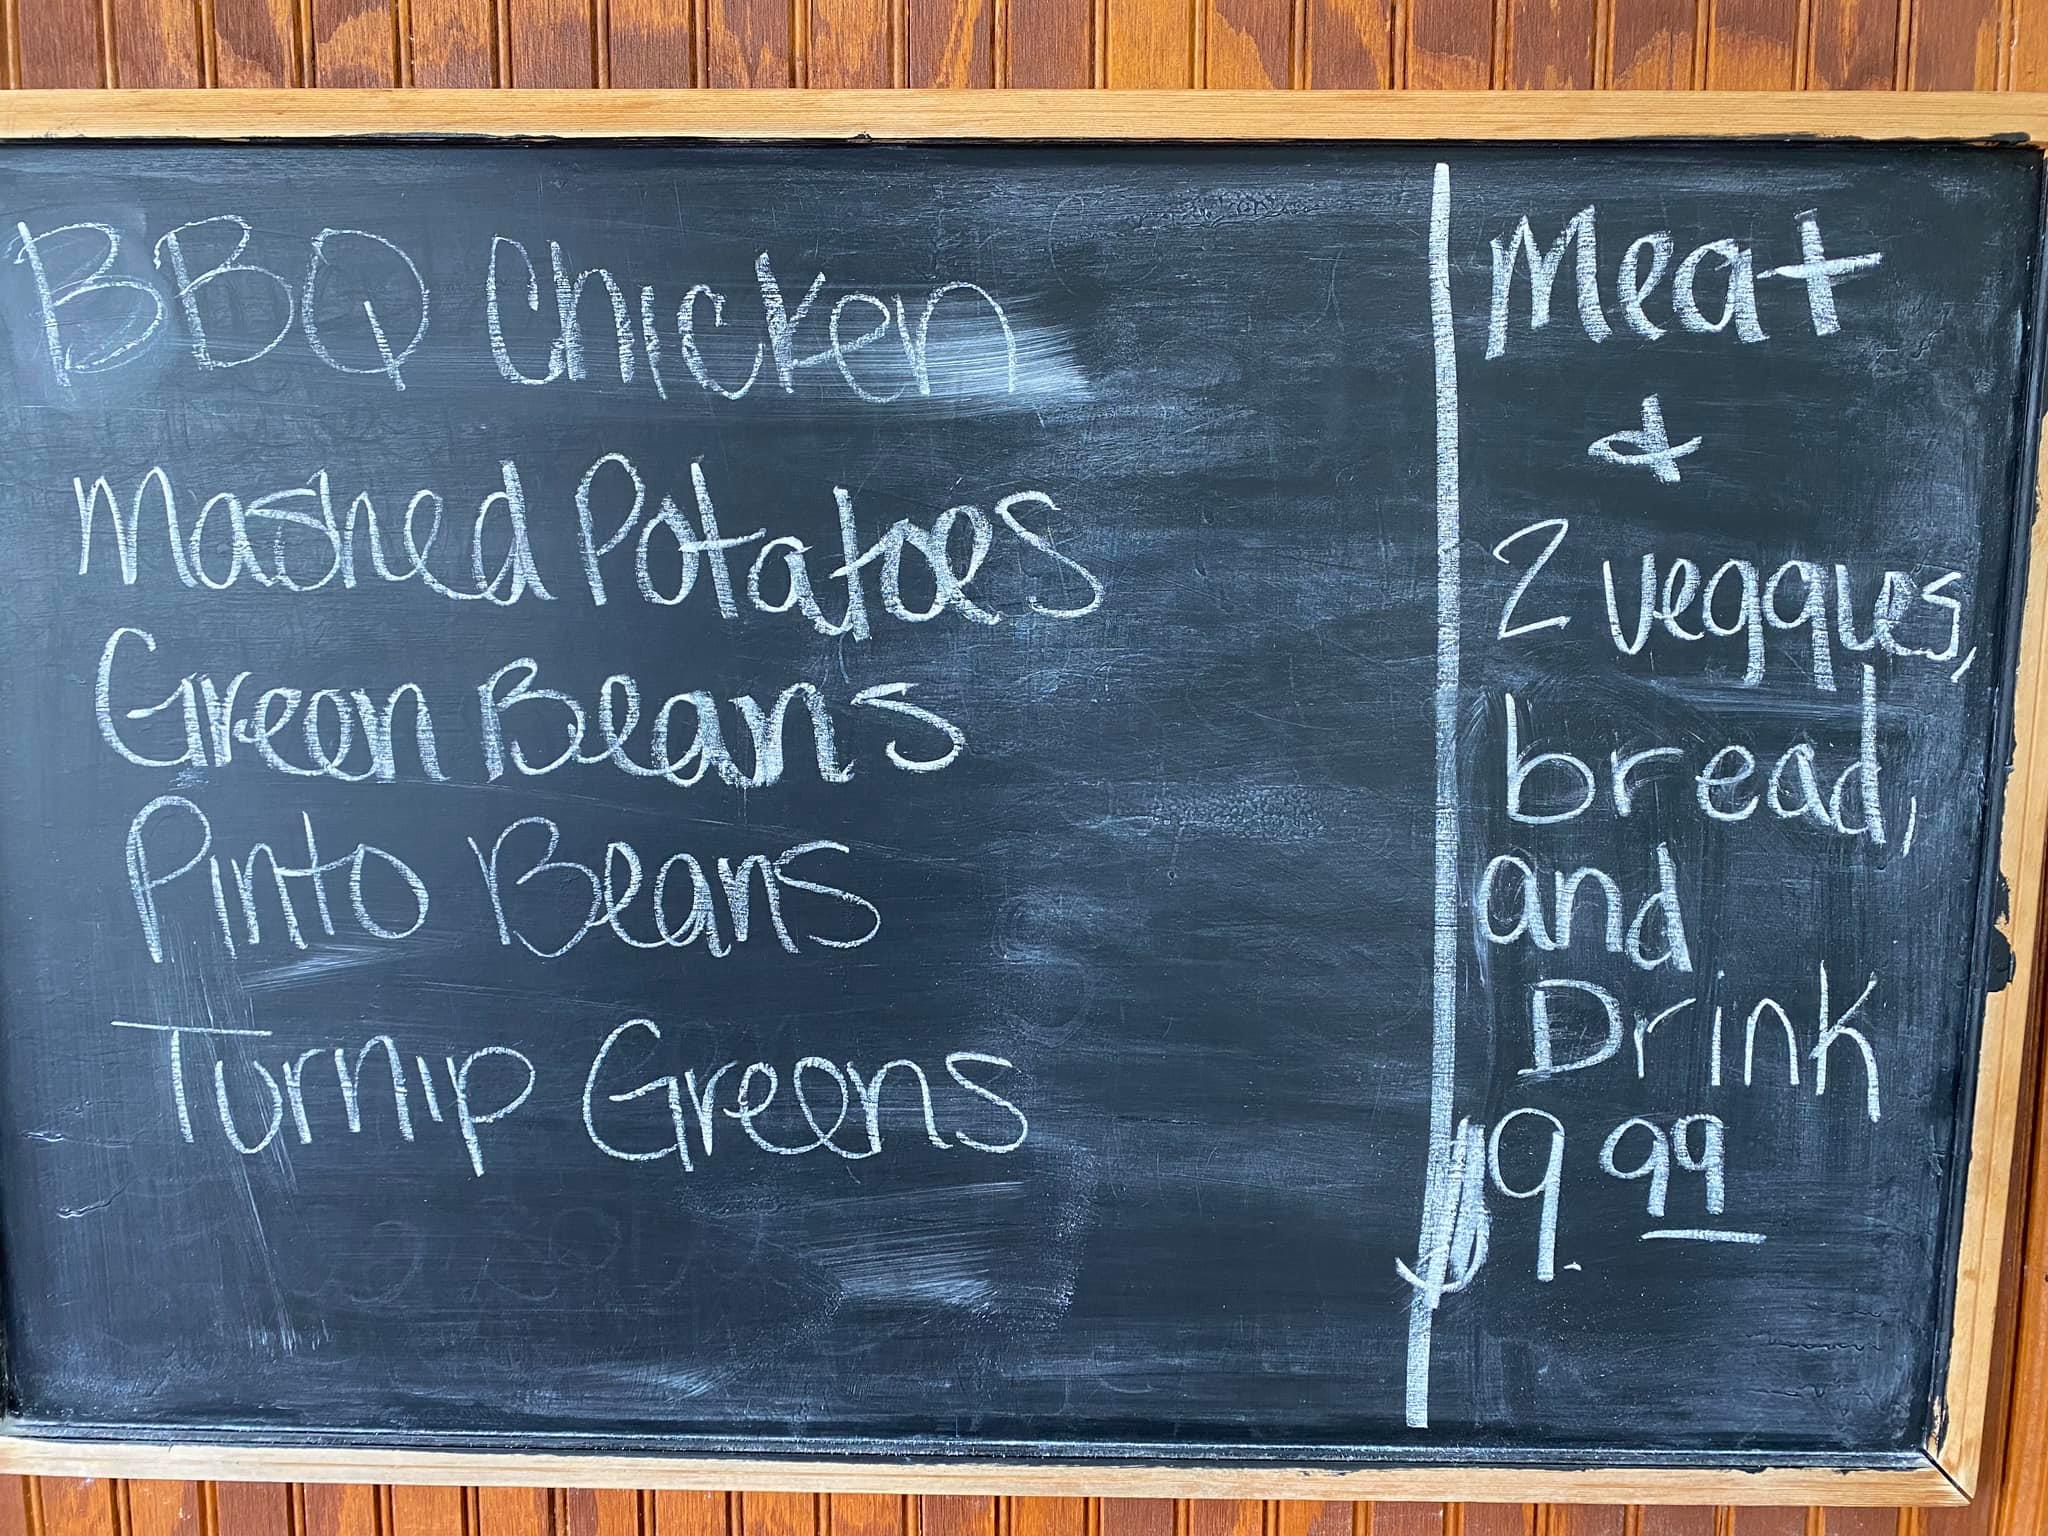 BBQ Chicken
Mashed Potatoes
Green Beans
Pinto Beans
Turnip Greens
Meat
&
2 veggies,
bread,
and
Drink
$9.99